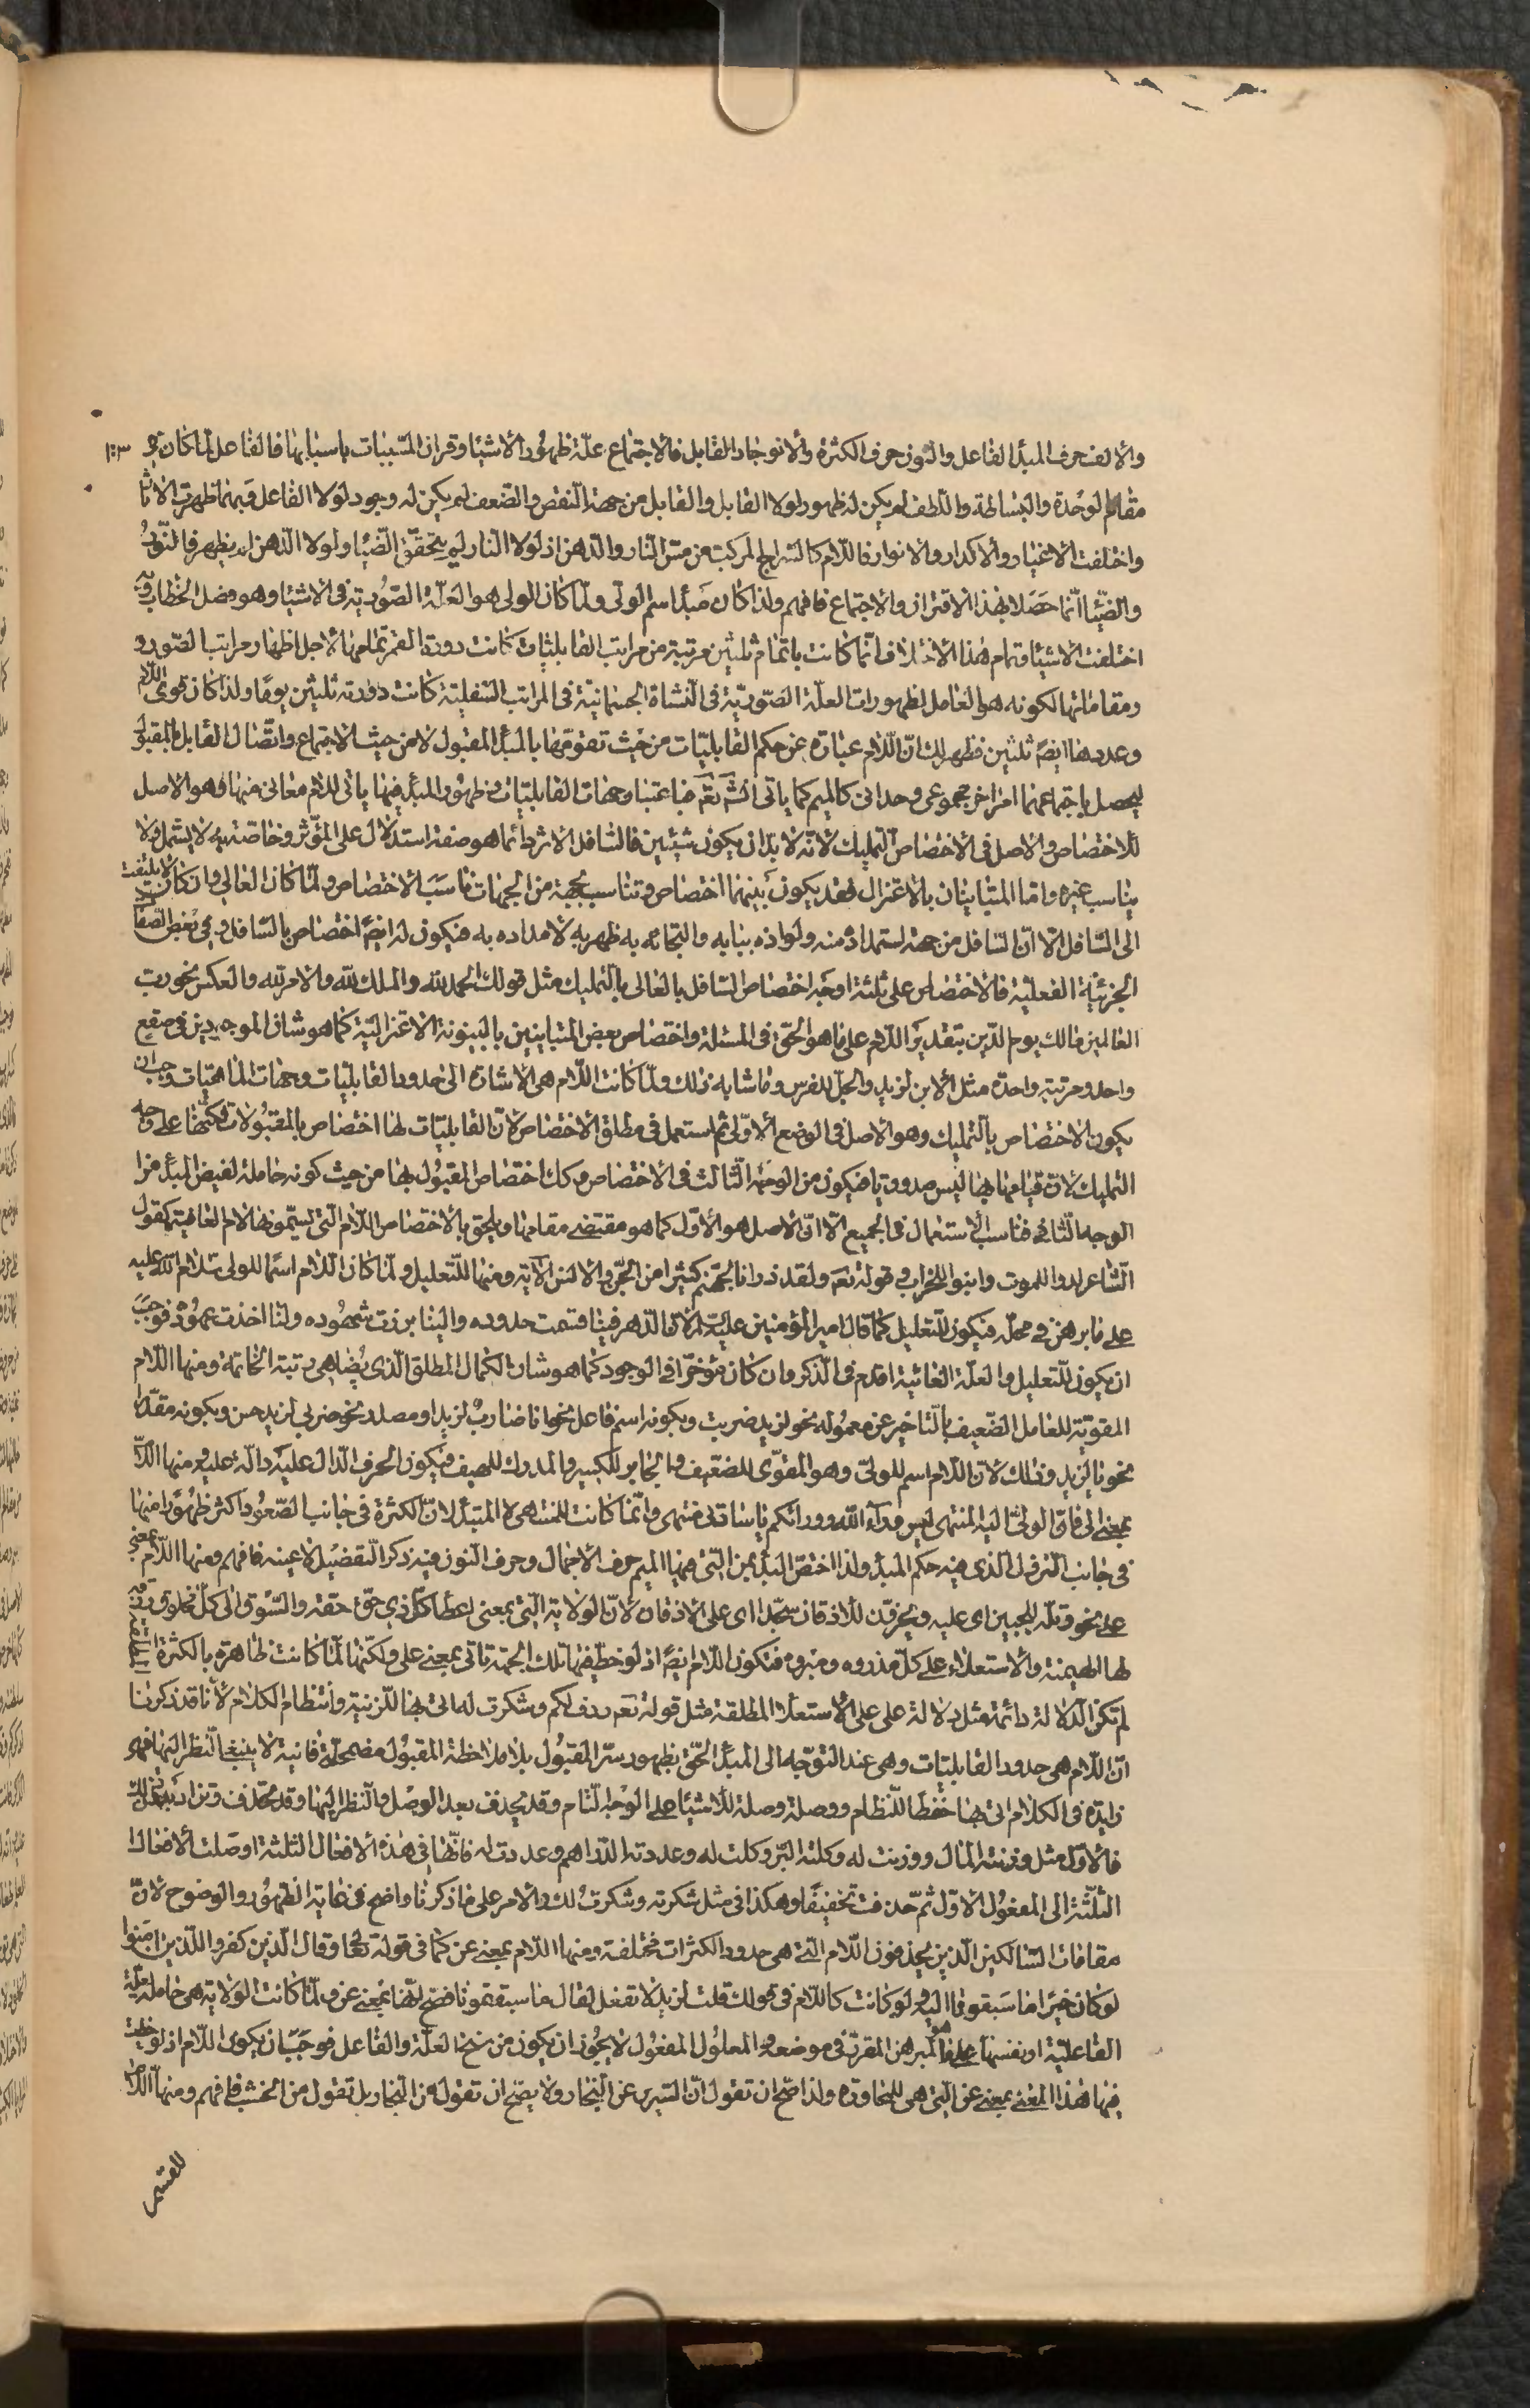 والألف حرف المبدأ الفاعل والنون حرف الكثرة والانوجاد القابل فالاجتماع علّة ظهور الأشياء وقران المسببات باسبابها فالفاعل لمّا كان في
مقام الوحدة والبساطة واللطف لم يكن له ظهور لولا القابل والقابل من جهة النقص والضعف لم يكن له وجود لولا الفاعل فبهما ظهرت الاثار
واختلفت الأغيار والأكدار والانوار فاللام كالسراج المركب من مسّ النار والدهن اذ لولا النار لم يتحقق الضياء ولولا الدهن لم يظهر فالنور
والضياء انّما حصلا بهذا الاقتران والاجتماع فافهم ولذا كان مبدأ اسم الولى ولمّا كان الولى هو العلّة الصّوريّة فى الاشياء وهو فصل الخطاب وبه
اختلفت الاشياء وتمام هذا الاختلاف انّما كانت باتمام ثلثين مرتبة من مراتب القابليّات كانت دورة القمر تمامها لاجل اظهار مراتب الصّور و
ومقاماتها لكونه هو الحامل لظهورات العلّة الصّوريّة فى النشاة الجسمانيّة فى المراتب السّفليّة كانت دورته ثلثين يومًا ولذا كان قوى اللّام
وعددها ايضًا ثلثين فظهر لك انّ اللّام عبارة عن حكم القابليّات من حيث تقوّمها بالمبدأ المقبول لا من حيث الاجتماع واتّصال القابل بالمقبول
ليحصل باجتماعهما امر اخر مجموعى وحدانى كالميم كما ياتى انش تعَ فباعتبار جهات القابليّات وظهور المبدأ فيها ياتى للام معانى منها وهو الاصل
للاختصاص والاصل فى الاختصاص التمليك لانّه لا بدّ ان يكون شيئين فالسافل الاثر دائما هو صفة استدلال على المؤثر وخاصّته به لا يشمل ولا
يناسب غيره وامّا المتباينان بالاعتزال فقد يكون بينهما اختصاص وتناسب بجهة من الجهات فناسب الاختصاص ولمّا كان العالى وان كان لا يلتفت
الى السّافل الّا انّ السّافل من جهة استمداده منه ولواذه ببابه والتجائه به ظهر به لامداده به فيكون له ايضًا اختصاص بالسّافل وهى بعض الصفات
الجزئيّة الفعليّة فالاختصاص على ثلثة اوجه اختصاص السّافل بالعالى بالتمليك مثل قولك الحمد لله والملك لله والامر لله والعكس نحو ربّ
العالمين مالك يوم الدّين بتقدير اللّام على ما هو الحقّ فى المسئلة واختصاص بعض المتباينين بالبينونة الاعتزاليّة كما هو شان الموجودين فى صقع
واحد ومرتبة واحدة مثل الابن لزيد والجلّ للفرس وما شابه ذلك ولمّا كانت اللّام هى الاشارة الى حدود القابليّات وجهات الماهيّات وجب ان
يكون الاختصاص بالتمليك وهو الاصل فى الوضع الاوّلى ثم استعمل فى مطلق الاختصاص لانّ القابليّات لها اختصاص بالمقبولات لكنها على وجه
التمليك لانّ قيامها بها ليس صدوريا فيكون من الوجه الثالث فى الاختصاص وكك اختصاص المقبول بها من حيث كونه حاملة لفيض المبدأ من
الوجه الثّانى فناسب الاستعمال فى الجميع الّا انّ الاصل هو الاوّل كما هو مقتضى مقامها ويلحق بالاختصاص اللّام التى يسمّونها لام العاقبة كقول
الشاعر لدوا للموت وابنوا للخراب وقوله تعَ ولقد ذرانا لجهنّم كثيرا من الجنّ والانس الآية ومنها للتعليل ولمّا كان اللّام اسمًا للولى سلام الله عليه
على ما برهن فى محلّه فيكون للتعليل كما قال امير المؤمنين عليه السّلم انّ الدهر فينا قسمت حدوده والينا برزت شهوده ولنا اخذت عهوده فوجب
ان يكون للتعليل والعلّة الغائية اقدم فى الذكر وان كان مؤخّرا فى الوجود كما هو شان الكمال المطلق الّذى يضاهى رتبة الخاتمة ومنها اللّام
المقوّية للعامل الضّعيف بالتاخير عن معموله نحو لزيد ضربت وبكونه اسم فاعل نحو انا ضارب لزيد او مصدر نحو ضربى لزيد حسن وبكونه مقدّرا
نحو يا لزيد وذلك لانّ اللّام اسم للولىّ وهو المقوّى للضعيف والجابر للكسير والمدرك للهيف فيكون الحرف الدّال عليه دالّة عليه ومنها اللّام
بمعنى الى فانّ الولىّ اليه المنتهى ليس وراء الله ووراءكم يا ساداتى منتهى وانّما كانت للمنتهى لا المبتدأ لانّ الكثرة فى جانب الصّعود اكثر ظهورا منها
فى جانب النزول الذى فيه حكم المبدأ ولذا اختصّ المبدأ بمن التى فيها الميم حرف الاجمال وحرف النون فيه ذكر التفصيل لا عينه فافهم ومنها اللّام بمعنى
على نحو وتلّه للجبين اى عليه ويخرّون للاذقان سجّدا اى على الاذقان لانّ الولاية التى بمعنى اعطاء كلّ ذى حقّ حقّه والسّوق الى كلّ مخلوق رزقه
لها الهيمنة والاستعلاء على كلّ مذروء ومبروء فتكون اللّام ايضًا اذ لوحظ فيها تلك الجهة تاتى بمعنى على ولكنّها لمّا كانت ظاهرة بالكثرة
لم تكن الدّلالة دائمة مثل دلالة على على الاستعلاء المطلقة مثل قوله تعَ ردف لكم وشكرت له اتى بها للزينة وانتظام الكلام لأنّا قد ذكرنا
انّ اللّام هى حدود القابليّات وهى عند التوجّه الى المبدأ الحقّ بظهور سرّ المقبول بلا ملاحظة المقبول مضمحلّة فانية لا ينبغى النّظر اليها فهى
زايدة فى الكلام اتى بها حفظا للنّظام ووصلة وصلة للاشياء على الوجه التام وقد يحذف بعد الوصل والنّظر اليها وقد تحذف وتزاد بعد ذلك
فالاوّل مثل وزنته المال ووزنت له وكلته البرّ وكلت له وعددته الدّراهم وعددت له فانّها فى هذه الافعال الثلثة اوصلت الافعال
الثلثة الى المفعول الاوّل ثمّ حذفت تخفيفًا وهكذا فى مثل شكرته وشكرت لك والامر على ما ذكرنا واضح فى غاية الظهور والوضوح لانّ
مقامات السّالكين الّذين يحذفون اللّام التى هى حدود الكثرات مختلفة ومنها اللّام بمعنى عن كما فى قوله تعا وقال الّذين كفروا للّذين امنوا
لو كان خيرًا ما سبقونا اليه ولو كانت كاللّام فى قولك قلت لزيد لا تفعل لقال ما سبقتمونا فصحّ انّها بمعنى عن ولمّا كانت الولاية هى حاملة العلّة
الفاعليّة او نفسها على ما هو المبرهن المقرّر فى موضعه والمعلول المفعول لا يجوز ان يكون من سنخ العلّة والفاعل فوجب ان يكون اللّام اذ لوحظت
فيها هذا المعنى بمعنى عن التى هى للمجاوزة ولذا صّح ان تقول انّ السّرير عن النّجار ولا يصّح ان تقول من النّجار بل تقول من الخشب فافهم ومنها اللّام
للقسم